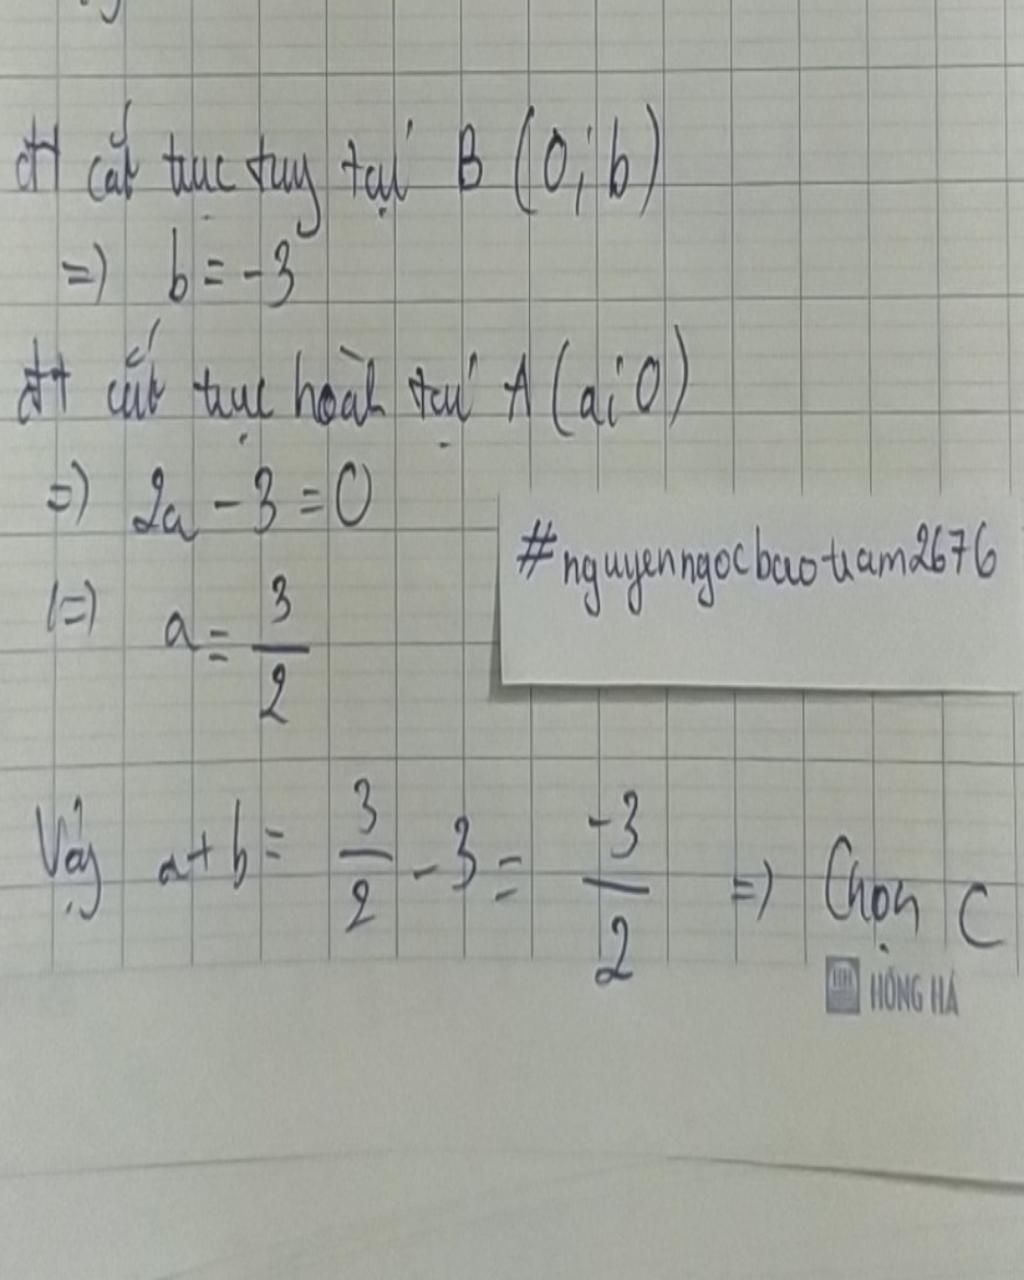 đt cắt trục tung tại B (0; b)
=) b = -3
đt cắt trục hoành tại A (a; 0)
=) 2a - 3 = 0
(=) a = 3/2
#nguyenngocbaotram2676
Vậy a + b = 3/2 - 3 = -3/2 =) Chọn C
HỒNG HÀ